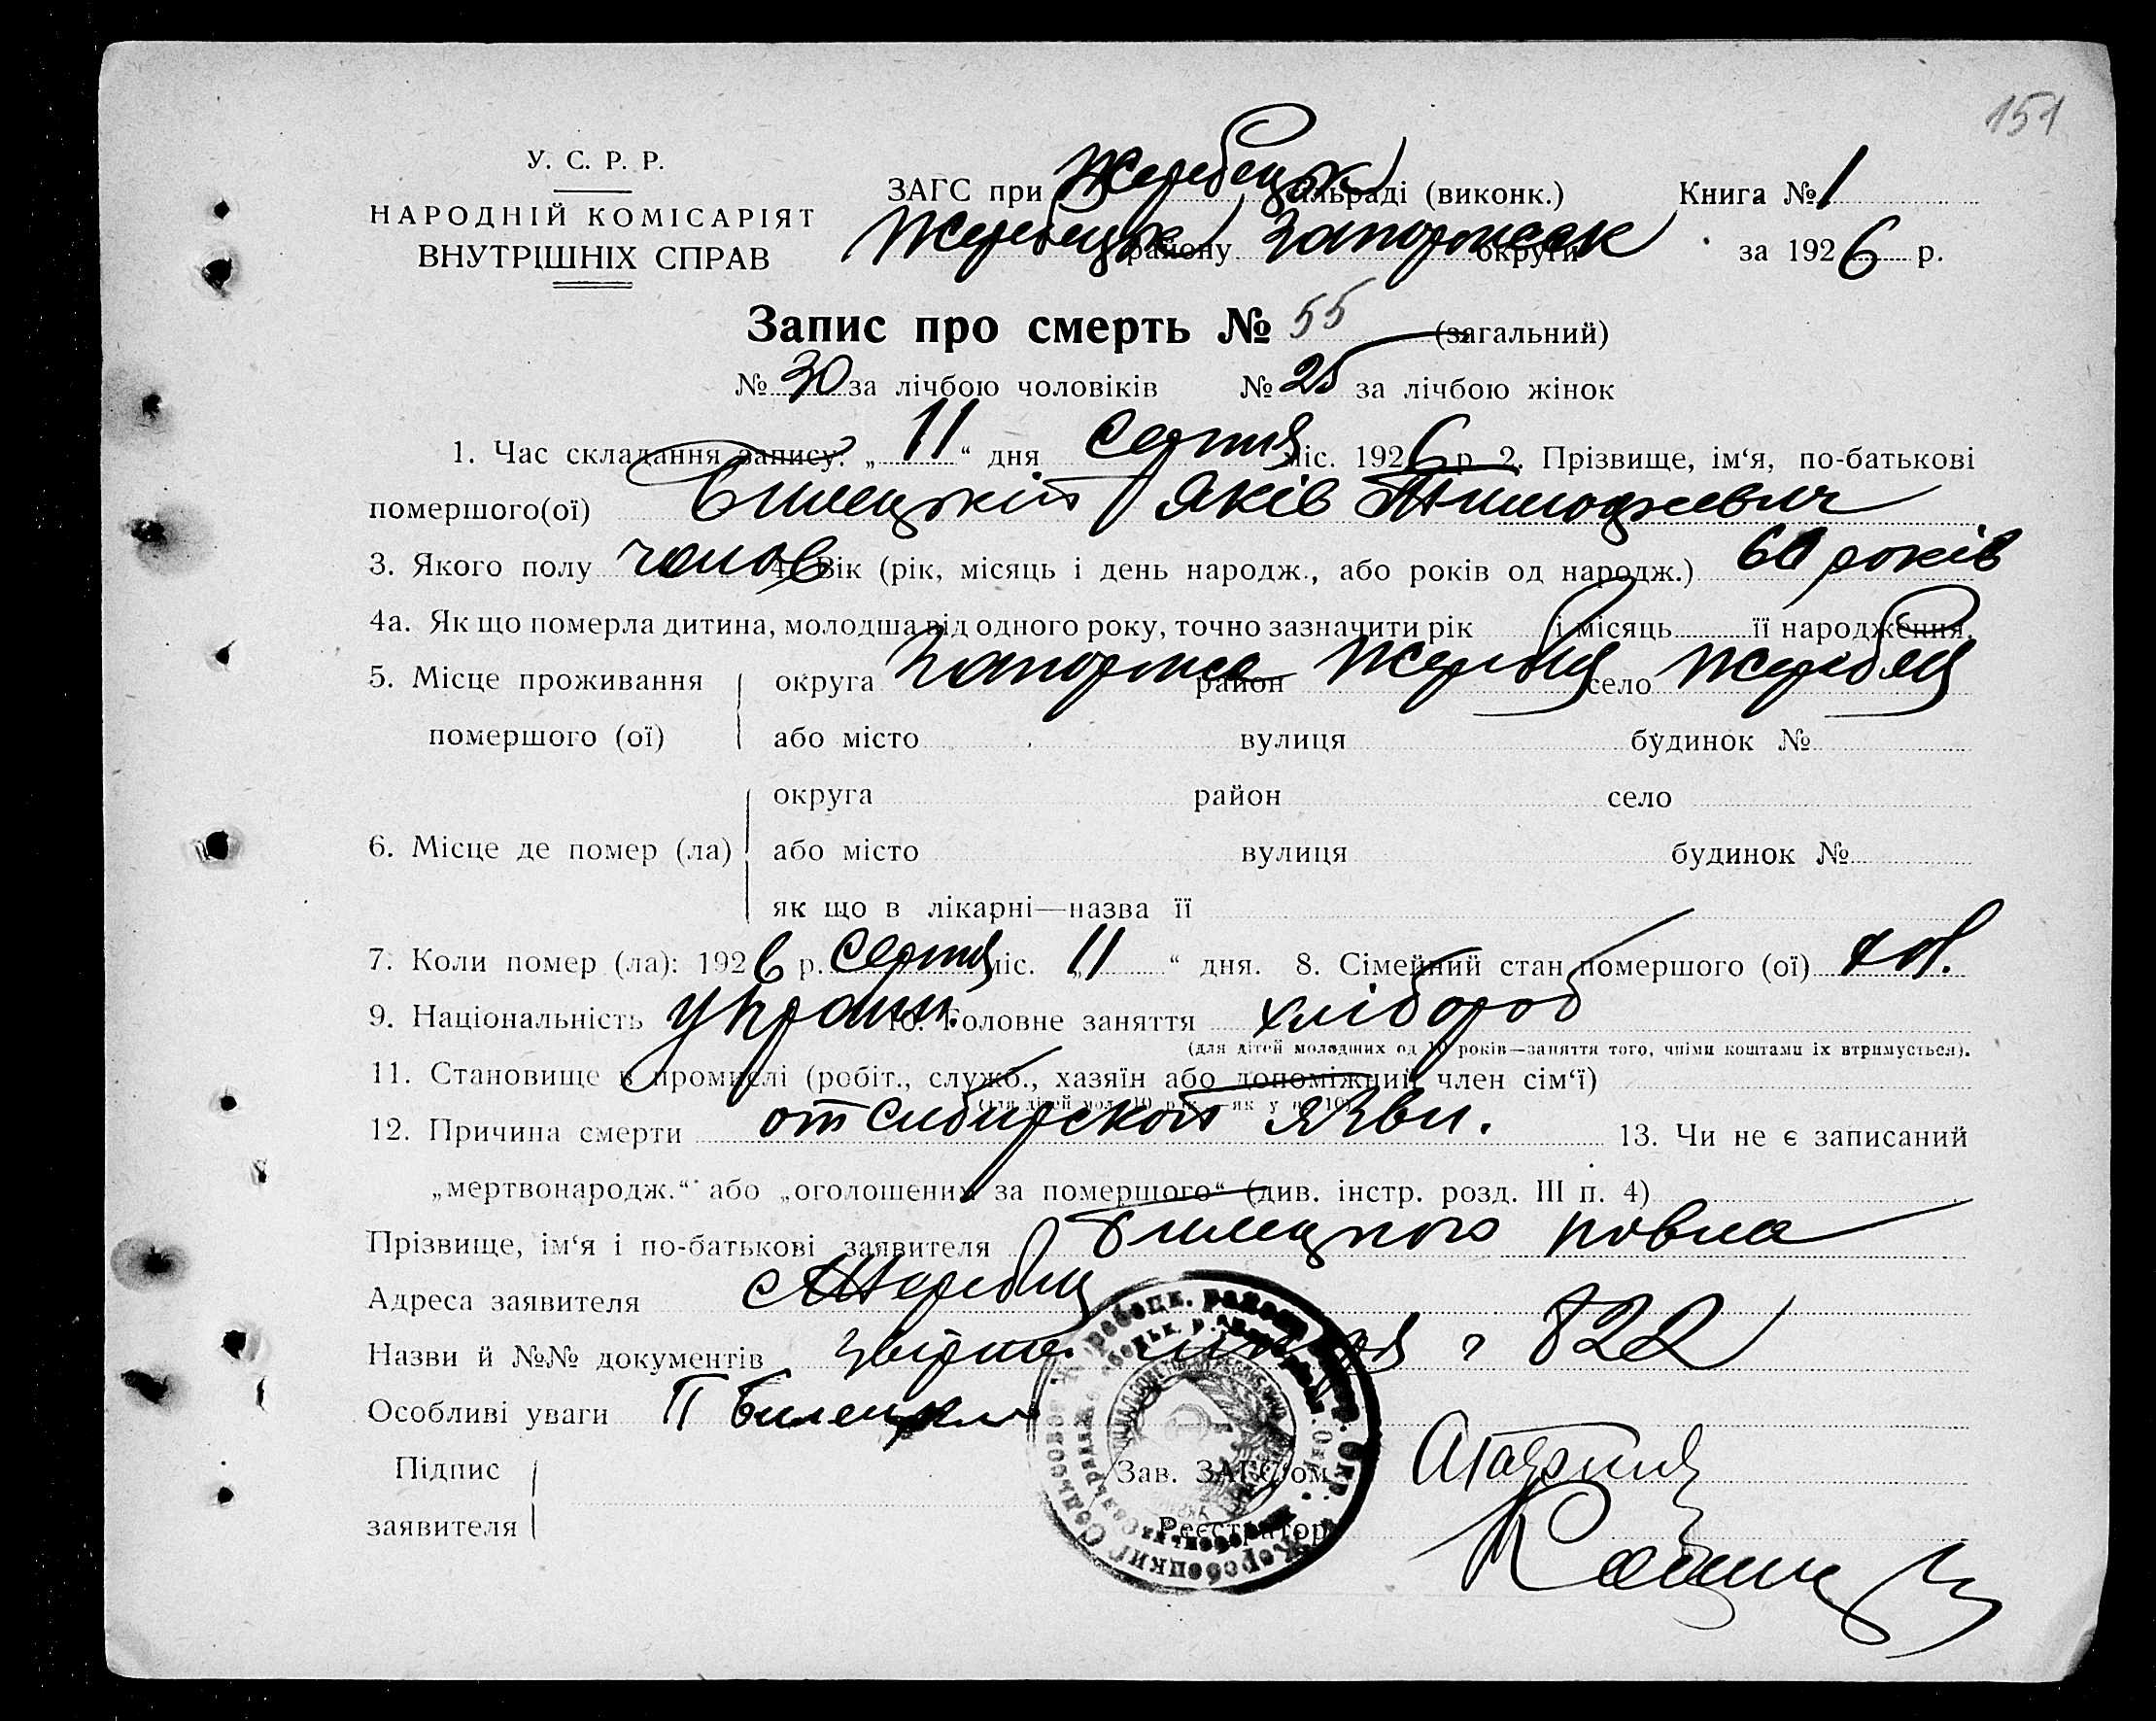 151
У. С. Р. Р.
НАРОДНІЙ КОМІСАРІЯТ
ВНУТРІШНІХ СПРАВ
ЗАГС при Жеребецьк сільраді (виконк.) Книга № 1
Жеребецьк району Запорожск округи за 1926 р.
Запис про смерть № 55 (загальний)
№ 30 за лічбою чоловіків № 25 за лічбою жінок
1. Час складання запису: „ 11 “ дня серпня міс. 1926 р. 2. Прізвище, ім‘я, по-батькові
помершого(ої) Билецький Яків Тимофеевич
3. Якого полу чолов 4. Вік (рік, місяць і день народж., або років од народж.) 60 років
4а. Як що померла дитина, молодша від одного року, точно зазначити рік і місяць її народження.
5. Місце проживання округа Запорожск район Жеребец село Жеребец
помершого (ої) або місто вулиця будинок №
округа район село
6. Місце де помер (ла) або місто вулиця будинок №
як що в лікарні—назва її
7. Коли помер (ла): 1926 р. серпня міс. „ 11 “ дня. 8. Сімейний стан помершого (ої)
9. Національність україн. 10. Головне заняття хлібороб
(для дітей молодших од 10 років—заняття того, чиїми коштами їх втримується).
11. Становище в промислі (робіт., служб., хазяїн або допоміжний член сім‘ї)
(для дітей мол. 10 рок.—як у п. 10)
12. Причина смерти от сибирской язви. 13. Чи не є записаний
„мертвонародж.“ або „оголошеним за помершого“ (див. інстр. розд. III п. 4)
Прізвище, ім‘я і по-батькові заявителя Билецкого
Адреса заявителя с Жеребец
Назви й №№ документів 822
Особливі уваги П Билецкий
Підпис Зав. ЗАГС‘ом
заявителя Реєстратор